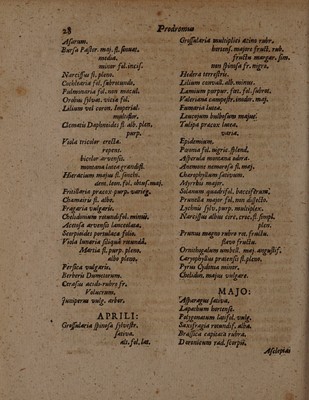 28
Prodromus
Asarum.
Bursa Pastor. maj. fl. sinuat.
media.
minor fol. incis.
Narcissus fl. pleno.
Cochlearia fol. rotundo.
Pulmonaria fol. non macul.
Orobus sylvat. vicia fol.
Lilium vel coron. Imperial.
Clematis Daphnoides fl. alb. plen.
purp.
Viola tricolor erecta.
repens.
bicolor arvensis.
montana lutea grandifl.
Hieracium majus fl. sonchi.
Fritillaria præcox purp. varieg.
Chamæiris fl. albo.
Fragaria vulgaris.
Chelidonium rotundifol. minus.
Acetosa arvensis lanceolata.
Scorpioides portulaca folio.
Viola lunaria siliqua rotunda.
Martia fl. purp. pleno.
albo pleno.
Persica vulgaris.
Berberis Dumetorum.
Cerasus acido rubro fr.
Juniperus vulg. arbor.
APRILI:
Grossularia spinosa sylvestr.
sativa.
alt. fol. lat.
Grossularia multiplici acino rubr.
hortens. majore fructu rub.
fructu margar. sim.
non spinosa fr. nigro.
Hedera terrestris.
Lilium convallium album.
Lamium purpur. fœt. fol. subrot.
Valeriana campestr. inodor. maj.
Fumaria lutea.
Leucojum bulbosum majus.
Tulipa præcox lutea.
varia.
Epidemium.
Pæonia fol. nigric. splend.
Asperula montana odora.
Anemone nemorosa fl. maj.
Chærophyllum sativum.
Myrrhis major.
Prunella major fol. non dissecto.
Lychnis sylv. purp. multiplex.
Narcissus albus circ. croc. fl. simpl.
plen.
Prunus magno rubro ro. fructu.
flavo fructu.
Ornithogalum umbell. maj. angustif.
Caryophyllus pratensis fl. pleno.
Pyrus Cydonia minor.
Chelidon. majus vulgare.
MAJO:
Asparagus sativa.
Lapathum hortense.
Polygonatum latifol. vulg.
Saxifragia rotundif. alba.
Brassica capitata rubra.
Doronicum rad. scorpii.
Asclepias